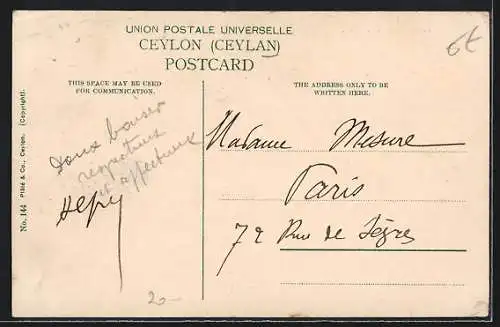 UNION POSTALE UNIVERSELLE
CEYLON (CEYLAN)
POSTCARD
6€
THIS SPACE MAY BE USED
FOR COMMUNICATION.
THE ADDRESS ONLY TO BE
WRITTEN HERE.
Doux baiser
respectueux
et affectueux
Madame Mesure
Paris
72 Rue de Sègres
No. 144 Plâté & Co., Ceylon. (Copyright).
20-